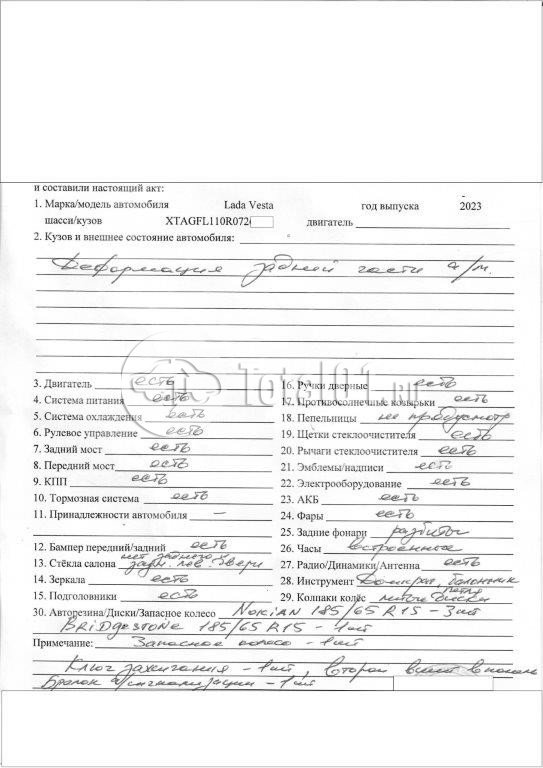 и составили настоящий акт:
1. Марка/модель автомобиля Lada Vesta год выпуска 2023
шасси/кузов XTAGFL110R072 двигатель
2. Кузов и внешнее состояние автомобиля:
Деформация задней части а/м.
Total01.ru
3. Двигатель есть 16. Ручки дверные есть
4. Система питания есть 17. Противосолнечные козырьки есть
5. Система охлаждения есть 18. Пепельницы не предусмотр
6. Рулевое управление есть 19. Щётки стеклоочистителя есть
7. Задний мост есть 20. Рычаги стеклоочистителя есть
8. Передний мост есть 21. Эмблемы/надписи есть
9. КПП есть 22. Электрооборудование есть
10. Тормозная система есть 23. АКБ есть
11. Принадлежности автомобиля – 24. Фары есть
25. Задние фонари разбиты
12. Бампер передний/задний есть 26. Часы встроенные
нет заднего
13. Стёкла салона задн. лев. двери 27. Радио/Динамики/Антенна есть
14. Зеркала есть 28. Инструмент Домкрат, балонник
петля
15. Подголовники есть 29. Колпаки колёс литые диски
30. Авторезина/Диски/Запасное колесо Nokian 185/65 R15 – 3 шт
Bridgestone 185/65 R15 – 1 шт
Примечание: Запасное колесо – 1 шт
Ключ зажигания – 1 шт, второй
Брелок сигнализации – 1 шт